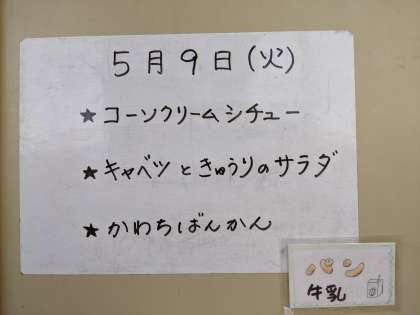 5月9日(火)
★コーンクリームシチュー
★キャベツときゅうりのサラダ
★かわちばんかん
パン
牛乳